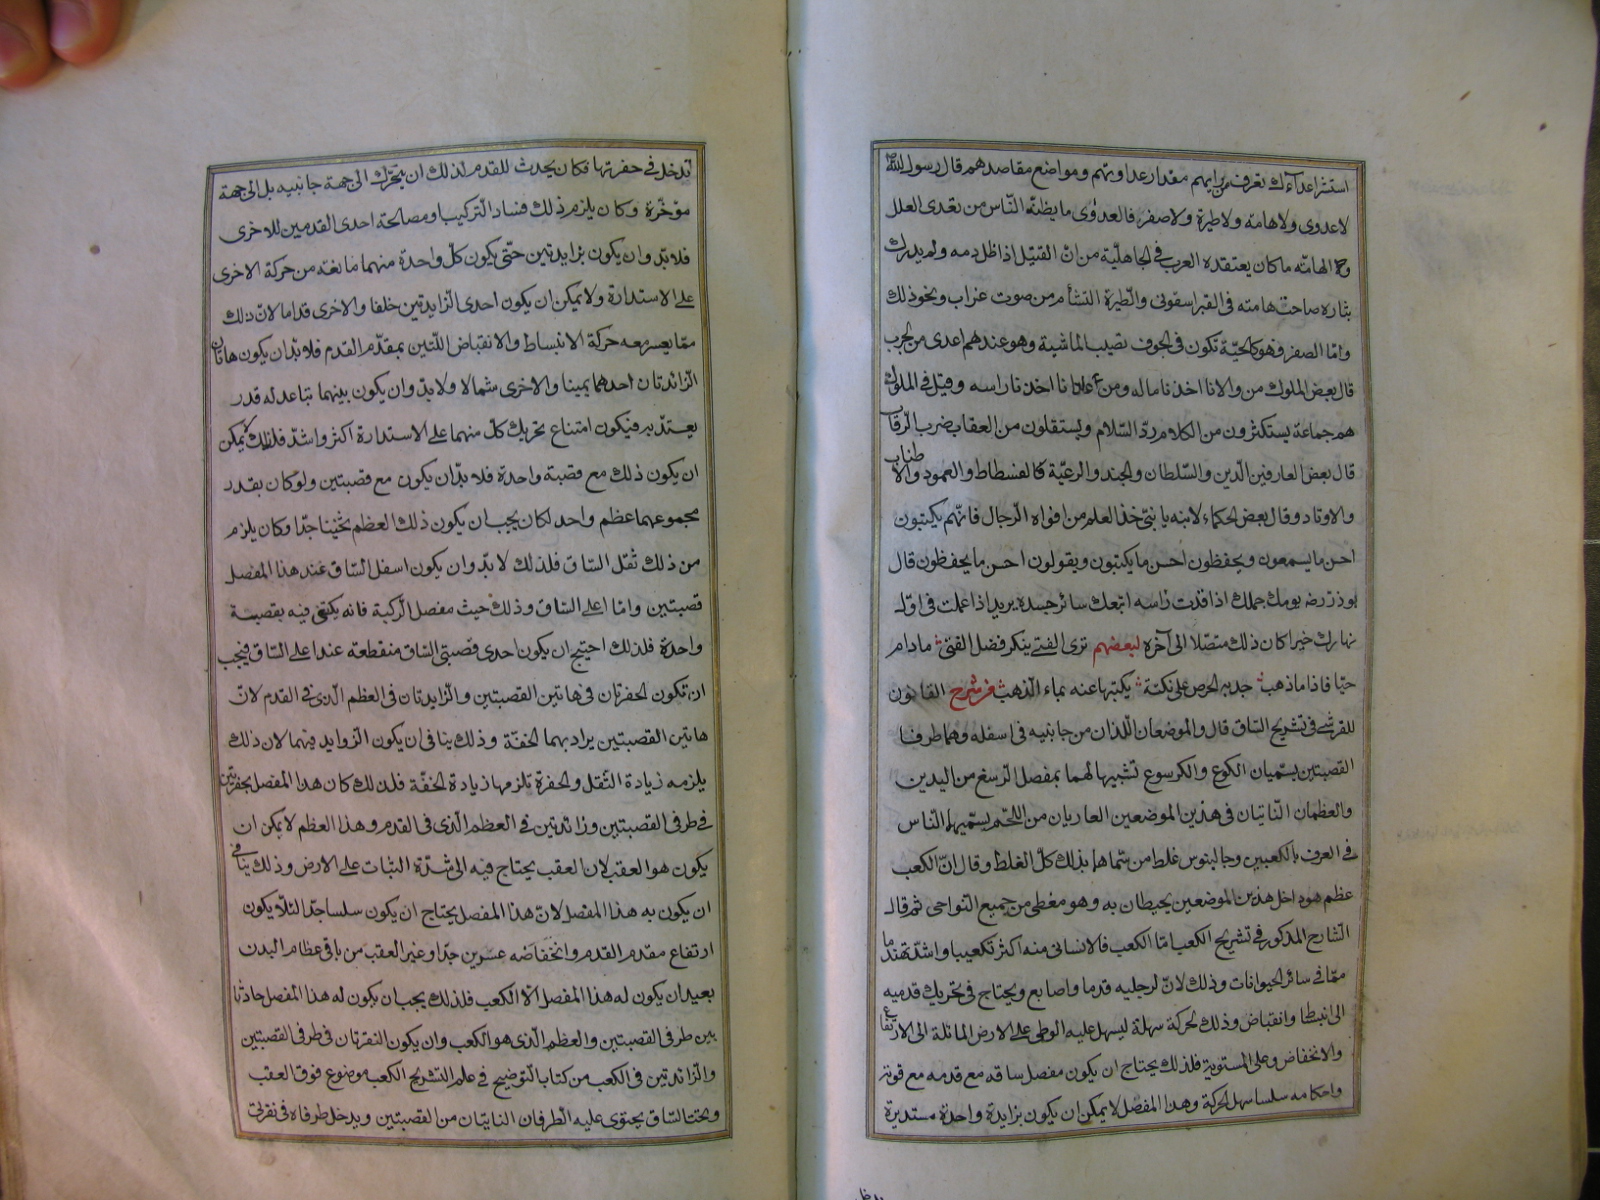 استشر اعداءك تعرف من رايهم مقدار عداوتهم ومواضع مقاصدهم قال رسول الله
لا عدوى ولا هامه ولا طيرة ولا صفر فالعدوى ما يظنه النّاس من تعدى العلل
الهامّه ما كان يعتقده العرب فى الجاهليّة من انّ القتيل اذا ظل دمه ولم يدرك
بثاره صاحت هامته فى القبر اسقونى والطّيرة التشأم من صوت غراب ونحو ذلك
وامّا الصفر فهو كالحيّة تكون فى الجوف تصيب الماشية وهو عندهم اعدى من الجرب
قال بعض الملوك من والانا اخذنا ماله ومن عادانا اخذنا راسه وقيل فى الملوك
هم جماعة يستكثرون من الكلام ردّ السّلام ويستقلون من العقاب ضرب الرّقاب
قال بعض العارفين الدّين والسّلطان والجند والرعيّة كالفسطاط والعمود والاطناب
والاوتاد وقال بعض الحكماء لابنه يا بنىّ خذ العلم من افواه الرّجال فانّهم يكتبون
احسن ما يسمعون ويحفظون احسن ما يكتبون ويقولون احسن ما يحفظون قال
بوذر رضه يومك جملك اذا قدت راسه اتبعك سائر جسده يريد اذا عملت فى اوّل
نهارك خيرا كان ذلك متصلا الى آخره لبعضهم ترى الفتى ينكر فضل الفتى مادام
حيّا فاذا ما ذهب جد به الحرص على نكتة يكتبها عنه بماء الذّهب من شرح القانون
للقرشى فى تشريح السّاق قال والموضعان اللّذان من جانبيه فى اسفله وهما طرفا
القصبتين يسمّيان الكوع والكرسوع تشبيها لهما بمفصل الرّسغ من اليدين
والعظمان النّاتيان فى هذين الموضعين العاريان من اللحم يسمّيهما النّاس
فى العرف بالكعبين وجالينوس غلط من سمّاهما بذلك كلّ الغلط وقال انّ الكعب
عظم هو داخل هذين الموضعين يحيطان به وهو مغطى من جميع النّواحى ثم قال
الشّارح المذكور فى تشريح الكعب امّا الكعب فالانسانى منه اكثر تكعيبا واشدّ تهندما
ممّا فى سائر الحيوانات وذلك لانّ لرجليه قدما واصابع ويحتاج فى تحريك قدميه
الى انبطا وانقباض وذلك لحركة سهلة ليسهل عليه الوطى على الارض المائلة الى الارتفاع
والانخفاض وعلى المستوية فلذلك يحتاج ان يكون مفصل ساقه مع قدمه مع قوته
واحكامه سلسا سهل الحركة وهذا المفصل لا يمكن ان يكون بزايدة واحدة مستديرة
يدخل
تدخل فى حفرتها فكان يحدث للقدم لذلك ان يتحرّك الى جهة جانبيه بل الى جهة
مؤخّرة وكان يلزم ذلك فساد التّركيب ومصالحة احدى القدمين للاخرى
فلا بدّ وان يكون بزايدتين حتّى يكون كلّ واحدة منهما مانعة من حركة الاخرى
على الاستدارة ولا يمكن ان يكون احدى الزّايدتين خلفا والاخرى قداما لانّ ذلك
ممّا يعسر معه حركة الانبساط والانقباض اللّتين بمقدّم القدم فلا بدّ ان يكون هاتان
الزّائدتان احدهما يمينا والاخرى شمالا ولا بدّ وان يكون بينهما تباعد له قدر
يعتدّ به فيكون امتناع تحريك كلّ منهما على الاستدارة اكثر واشدّ فلذلك لا يمكن
ان يكون ذلك مع قصبة واحدة فلا بدّ ان يكون مع قصبتين ولو كان بقدر
مجموعهما عظم واحد لكان يجب ان يكون ذلك العظم ثخينا جدّا وكان يلزم
من ذلك ثقل السّاق فلذلك لا بدّ وان يكون اسفل السّاق عند هذا المفصل
قصبتين وامّا اعلى السّاق وذلك حيث مفصل الرّكبة فانه يكتفى فيه بقصبة
واحدة فلذلك احتيج ان يكون احدى قصبتى السّاق منقطعة عند اعلى السّاق فيجب
ان تكون الحفرتان فى هاتين القصبتين والزّايدتان فى العظم الّذى فى القدم لانّ
هاتين القصبتين يراد بهما الخفّة وذلك ينافى ان يكون الزّوايد فيهما لان ذلك
يلزمه زيادة الثّقل والحفرة تلزمها زيادة الخفّة فلذلك كان هذا المفصل بحفرتين
فى طرفى القصبتين وزائدتين فى العظم الّذى فى القدم وهذا العظم لا يمكن ان
يكون هو العقب لان العقب يحتاج فيه الى شدّة الثبات على الارض وذلك ينافى
ان يكون به هذا المفصل لانّ هذا المفصل يحتاج ان يكون سلسا جدّا لئلّا يكون
ارتفاع مقدم القدم وانخفاضه عسرين جدّا وغير العقب من باقى عظام البدن
بعيد ان يكون له هذا المفصل الّا الكعب فلذلك يجب ان يكون له هذا المفصل حادثا
بين طرفى القصبتين والعظم الّذى هو الكعب وان يكون النقرتان فى طرفى القصبتين
والزّائدتين فى الكعب من كتاب التّوضيح فى علم التّشريح الكعب موضوع فوق العقب
وتحت السّاق يحتوى عليه الطّرفان الناتيان من القصبتين ويدخل طرفاه فى نقرتى